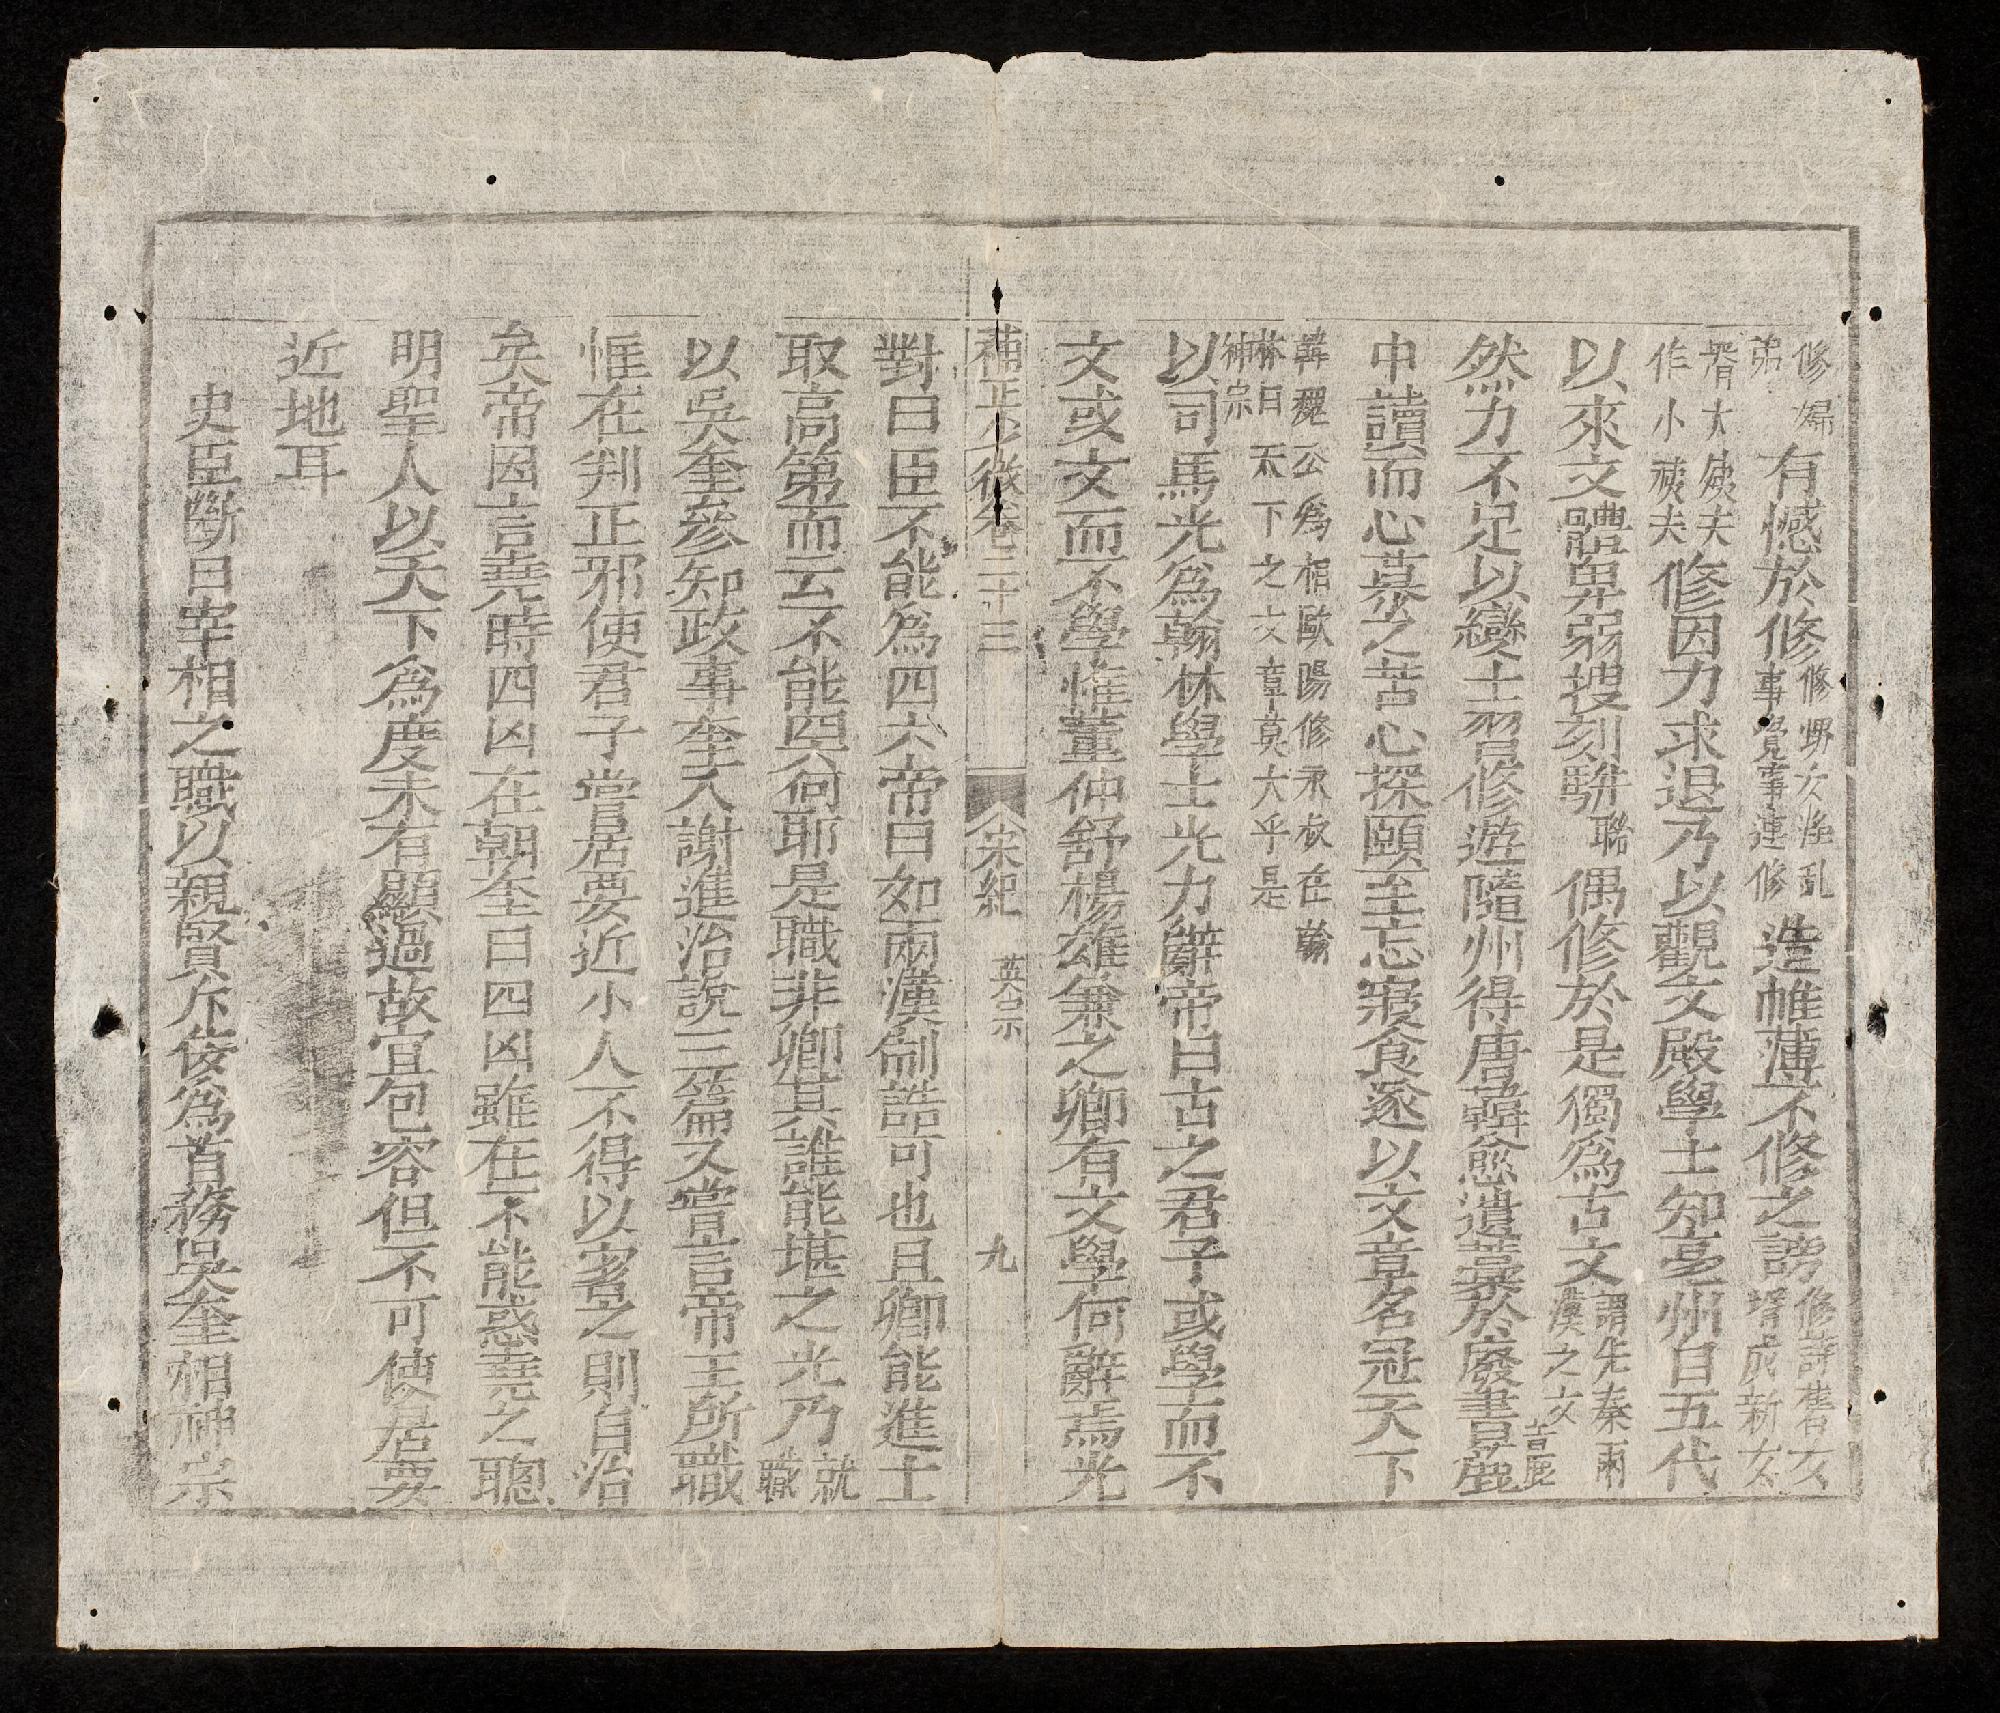 修婦弟有憾於修修甥女淫乱事覺事連修造帷薄不修之謗修詩舊女壻成新女
壻大姨夫作小姨夫修因力求退乃以觀文殿學士知亳州自五代
以來文體卑弱搜刻駢聯偶修於是獨爲古文謂先秦兩漢之文
然力不足以變士習修遊隨州得唐韓愈遺藁於廢書簏音鹿
中讀而心慕之苦心探頤至忘寢食遂以文章名冠天下
韓魏公爲相歐陽修永叔在翰林曰天下之文章莫大乎是神宗
以司馬光爲翰林學士光力辭帝曰古之君子或學而不
文或文而不學惟董仲舒楊雄兼之卿有文學何辭焉光
補正少微卷三十三 宋紀 英宗 九
對曰臣不能爲四六帝曰如兩漢制誥可也且卿能進士
取高第而云不能與何耶是職非卿其誰能堪之光乃就職
以吳奎參知政事奎入謝進治說三篇又嘗言帝王所職
惟在判正邪使君子嘗居要近小人不得以害之則自治
矣帝因言堯時四凶在朝奎曰四凶雖在不能惑堯之聰
明聖人以天下爲度未有顯過故宜包容但不可使居要
近地耳
史臣斷曰宰相之職以親賢斥佞爲首務吳奎相神宗